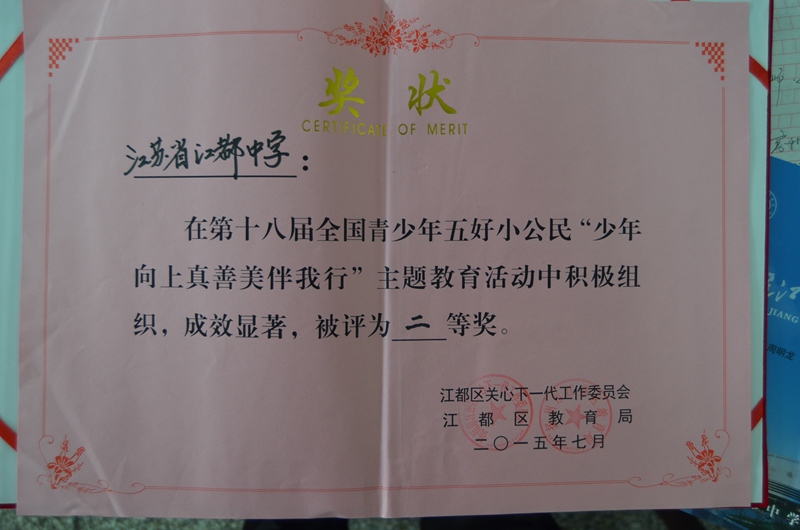 奖状
CERTIFICATE OF MERIT
江苏省江都中学：
在第十八届全国青少年五好小公民“少年
向上真善美伴我行”主题教育活动中积极组
织，成效显著，被评为二等奖。
江都区关心下一代工作委员会
江都区教育局
二〇一五年七月
江
JIANG
周明龙
中学